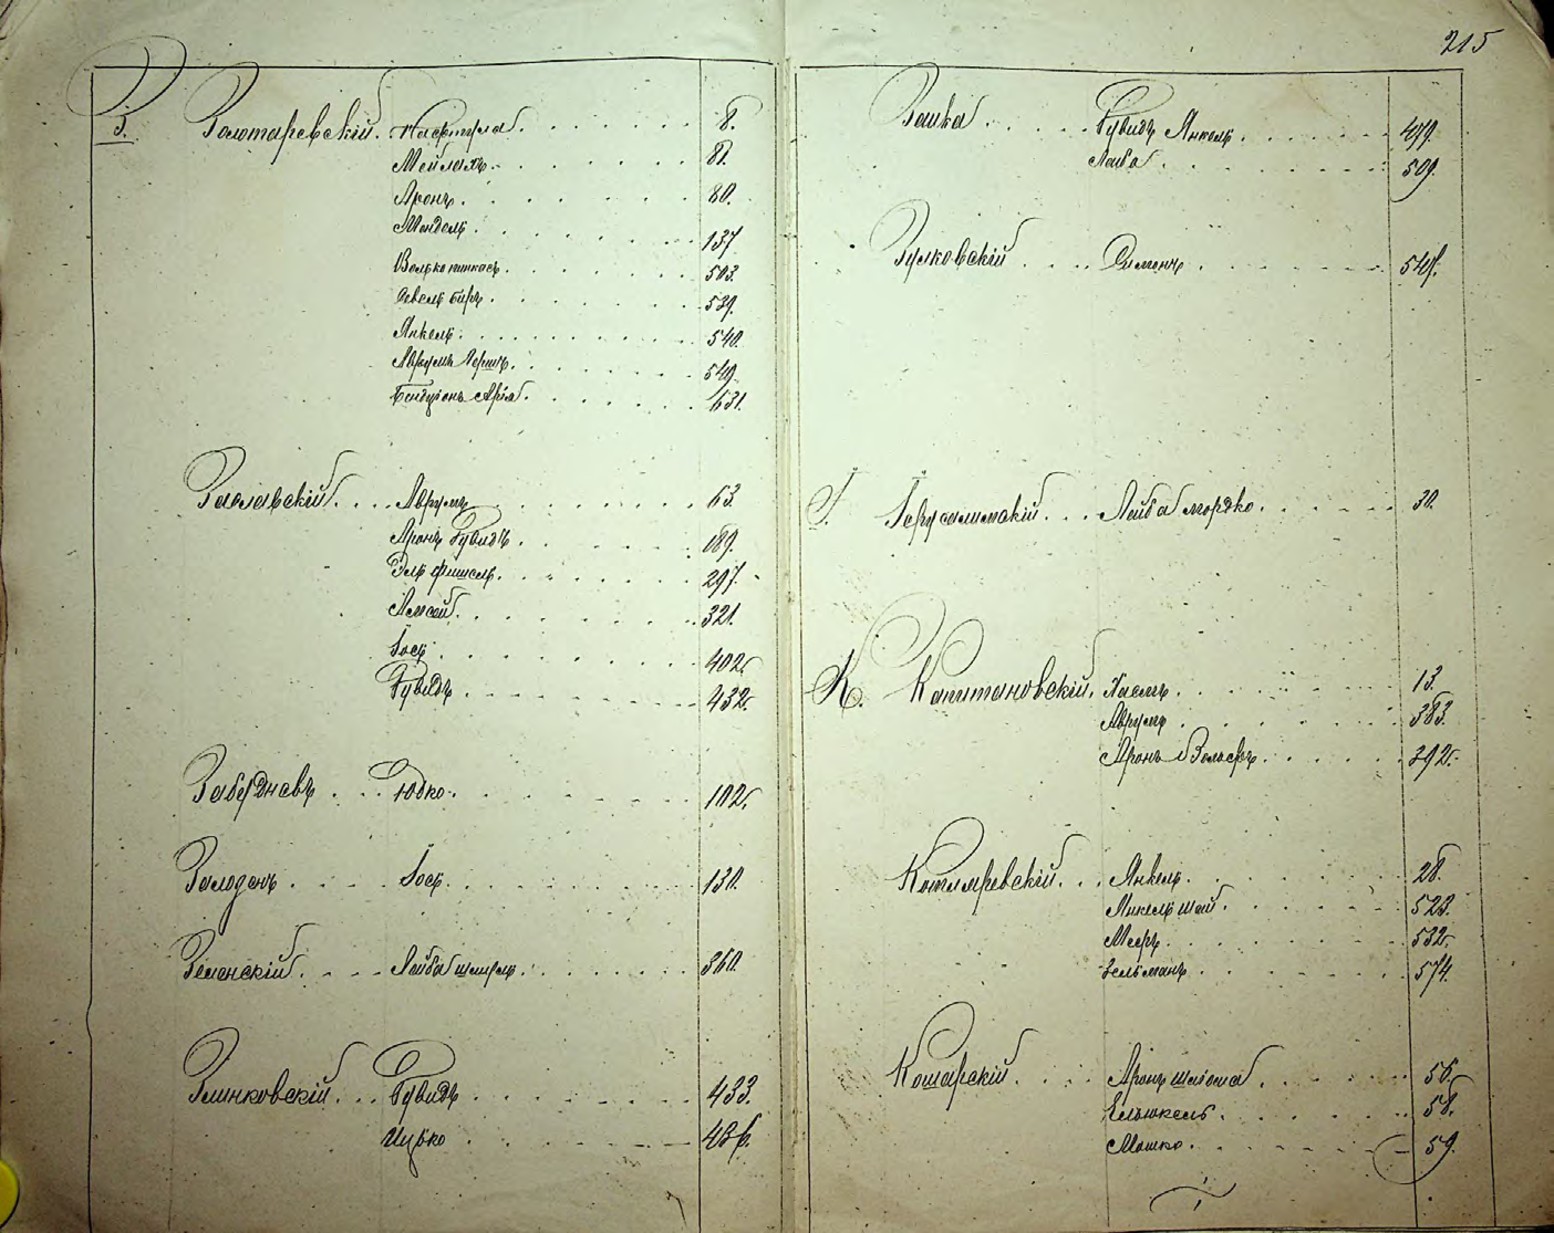 215
З. Золотаревскій. Нафтула. 8.
Мейлахъ. 81.
Аронъ. 80.
Мендель. 137
Волько пинкасъ. 503.
Севель Беръ. 539.
Янкель. 540.
Аврумъ Гершъ. 549.
Бенціонъ Арія. 631.
Заславскій. Аврумъ 63.
Аронъ Дувидъ. 189.
Эль фишель. 297.
Алтеръ. 321.
Іось. 402.
Дувидъ. 432.
Забудневъ. Юдко. 102.
Іось. 130.
Зеленскій. Лейба шмуль. 360.
Злинковскій. Дувидъ 433.
Ицько 436.
Зашка. Дувидъ Янкель. 479.
Лейба. 509.
Зулковскій. Симонъ. 547.
І. Іерусалимскій. Лейба мордко. 30.
К. Капитановскій. Хаемъ. 13.
Аврумъ. 383.
Аронъ Вольфъ. 392.
Котляревскій. Янкель. 28.
Янкель шай. 523.
Мееръ. 532.
Зельманъ. 574.
Кошарскій. Аронъ шлёма. 56.
58.
Мошко. 59.